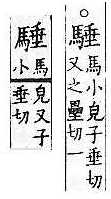 ○䮔馬小皃子垂切
又之壘切一
䮔馬
小
皃又子
垂切